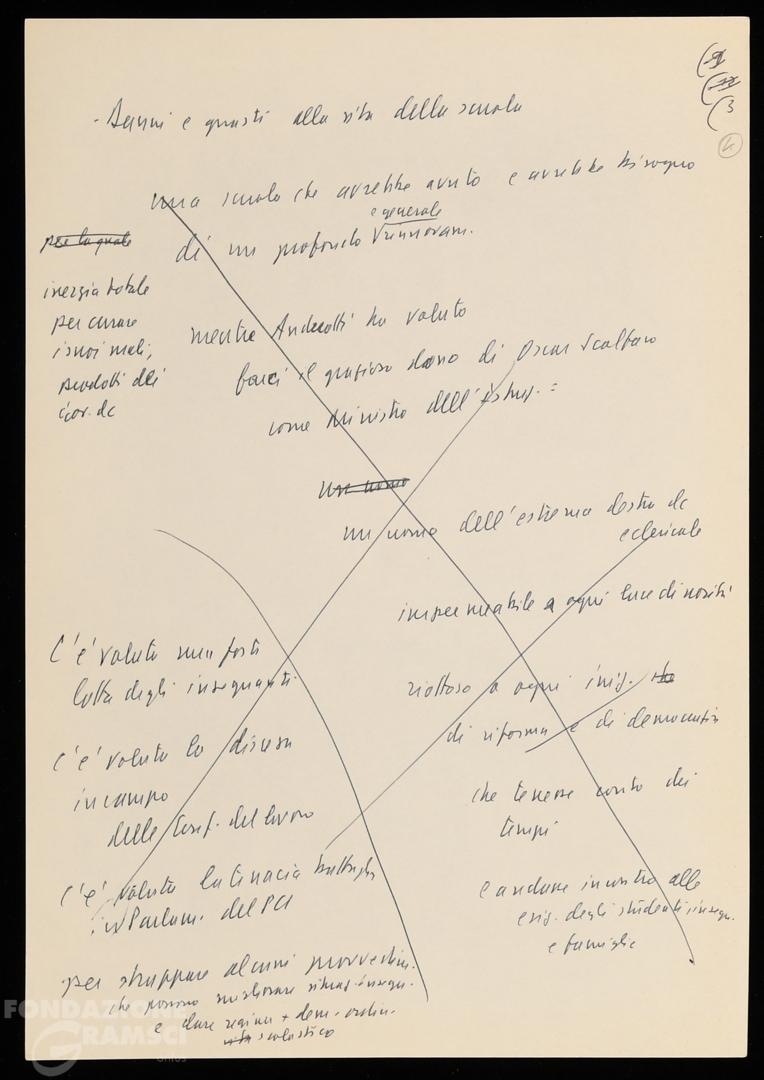 (3
- Danni e guasti alla vita della scuola
una scuola che avrebbe avuto e avrebbe bisogno
e generale
di un profondo rinnovam.
per la quale
inerzia totale
per curare
i suoi mali,
prodotti dai
gov. dc
mentre Andreotti ha voluto
farci il grazioso dono di Oscar Scalfaro
come Ministro dell'Istruz. =
un uomo
un uomo dell'estrema destra dc
e clericale
impermeabile a ogni luce di novità
riottoso a ogni iniz. che
di riforma e di democratiz
che tenesse conto dei
tempi
e andare incontro alle
esig. degli studenti, insegn.
e famiglie
C'è voluta una forte
lotta degli insegnanti
C'è voluta la discesa
in campo
delle Conf. del lavoro
C'è voluta la tenacia battaglia
in Parlam. del PCI
per strappare alcuni provvedim.
che possono migliorare situaz. insegn.
e dare regime + dem. ordin.
vita scolastico
FONDAZIONE
GRAMSCI
onlus